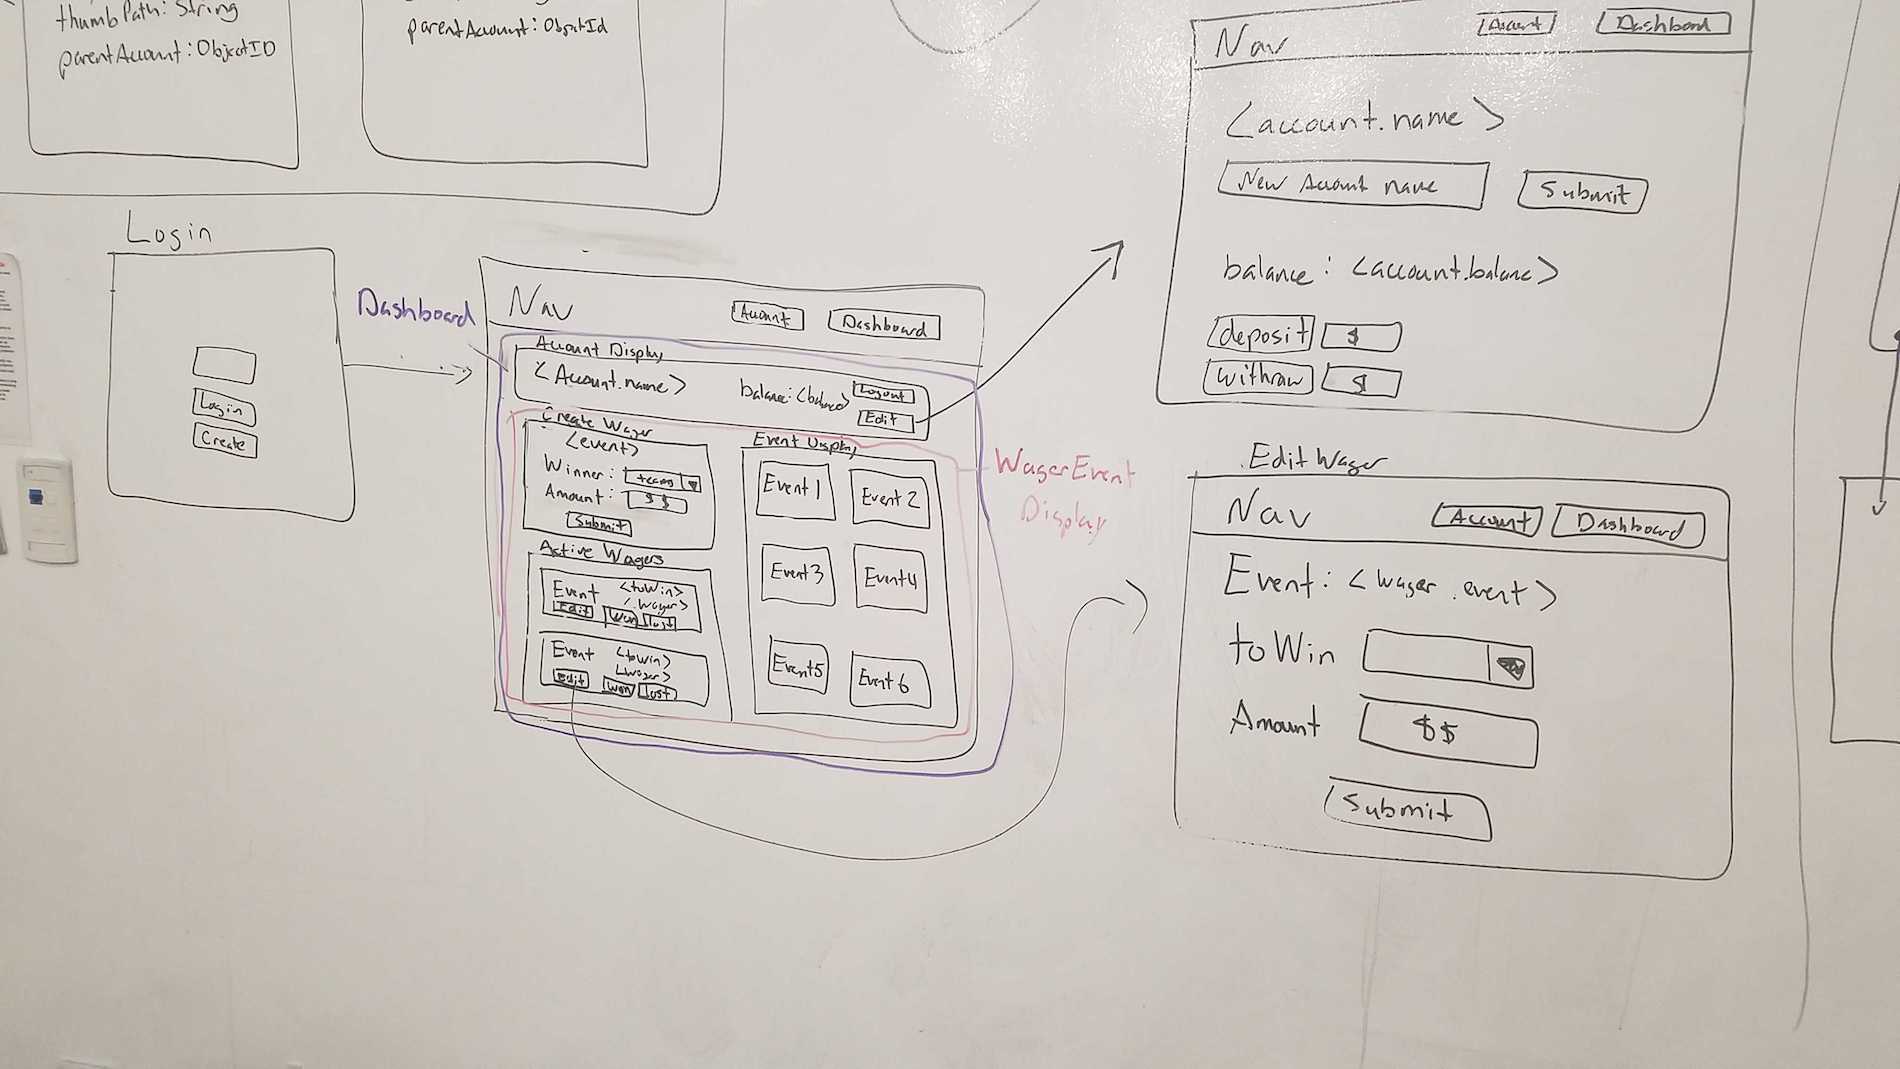 thumbPath: String
parentAccount: ObjectID
parentAccount: ObjectId
Login
Login
Create
Dashboard
Nav
Account
Dashboard
Account Display
<Account.name>
balance: <balance>
Logout
Edit
Create Wager
<event>
Winner: teams
Amount: $$
Submit
Active Wagers
Event <toWin>
<.Wager>
Edit Won lost
Event <toWin>
<Wager>
Edit won lost
Event Display
Event 1
Event 2
Event 3
Event 4
Event 5
Event 6
WagerEvent
Display
Nav
Account
Dashboard
<account.name>
New Account name
Submit
balance: <account.balanc>
deposit $
Withraw $
.EditWager
Nav
Account
Dashboard
Event: <wager.event>
toWin
Amount $$
Submit